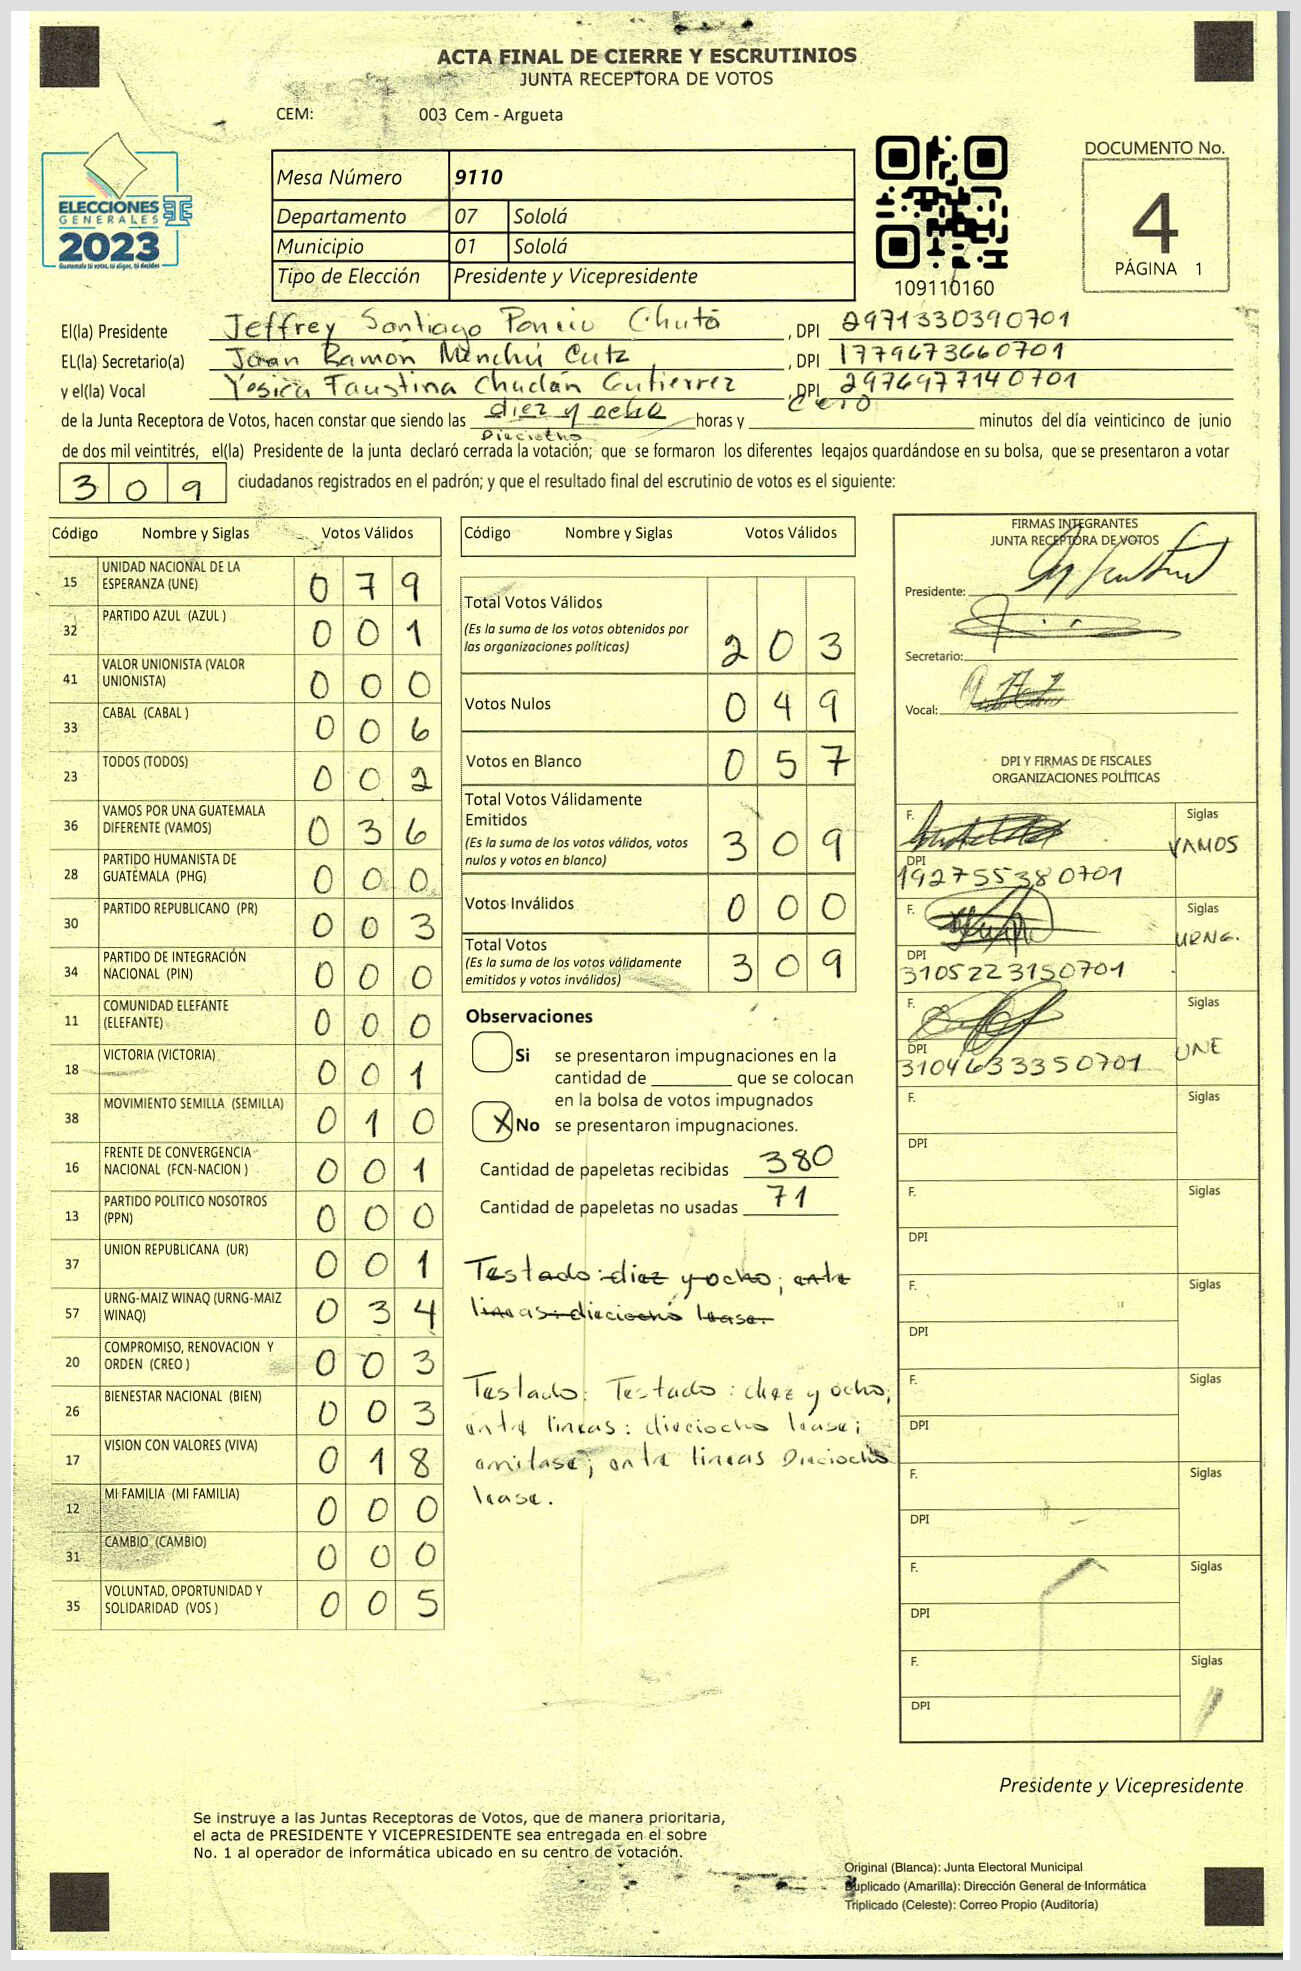 ACTA FINAL DE CIERRE Y ESCRUTINIOS
JUNTA RECEPTORA DE VOTOS
CEM: 003 Cem - Argueta
ELECCIONES
GENERALES
2023
Guatemala tú votas, tú eliges, tú decides
Mesa Número 9110
Departamento 07 Sololá
Municipio 01 Sololá
Tipo de Elección Presidente y Vicepresidente
109110160
DOCUMENTO No.
4
PÁGINA 1
El(la) Presidente Jeffrey Santiago Chutá , DPI 2971330390701
EL(la) Secretario(a) Juan Ramón Menchú Cutz , DPI 1779673660701
y el(la) Vocal Yesica Faustina Chudán Gutierrez , DPI 2976977140701
de la Junta Receptora de Votos, hacen constar que siendo las diez y ocho horas y cero minutos del día veinticinco de junio
Dieciocho
de dos mil veintitrés, el(la) Presidente de la junta declaró cerrada la votación; que se formaron los diferentes legajos guardándose en su bolsa, que se presentaron a votar
309 ciudadanos registrados en el padrón; y que el resultado final del escrutinio de votos es el siguiente:
Código Nombre y Siglas Votos Válidos
15 UNIDAD NACIONAL DE LA ESPERANZA (UNE) 079
32 PARTIDO AZUL (AZUL ) 001
41 VALOR UNIONISTA (VALOR UNIONISTA) 000
33 CABAL (CABAL ) 006
23 TODOS (TODOS) 002
36 VAMOS POR UNA GUATEMALA DIFERENTE (VAMOS) 036
28 PARTIDO HUMANISTA DE GUATEMALA (PHG) 000
30 PARTIDO REPUBLICANO (PR) 003
34 PARTIDO DE INTEGRACIÓN NACIONAL (PIN) 000
11 COMUNIDAD ELEFANTE (ELEFANTE) 000
18 VICTORIA (VICTORIA) 001
38 MOVIMIENTO SEMILLA (SEMILLA) 010
16 FRENTE DE CONVERGENCIA NACIONAL (FCN-NACION ) 001
13 PARTIDO POLITICO NOSOTROS (PPN) 000
37 UNION REPUBLICANA (UR) 001
57 URNG-MAIZ WINAQ (URNG-MAIZ WINAQ) 034
20 COMPROMISO, RENOVACION Y ORDEN (CREO ) 003
26 BIENESTAR NACIONAL (BIEN) 003
17 VISION CON VALORES (VIVA) 018
12 MI FAMILIA (MI FAMILIA) 000
31 CAMBIO (CAMBIO) 000
35 VOLUNTAD, OPORTUNIDAD Y SOLIDARIDAD (VOS ) 005
Código Nombre y Siglas Votos Válidos
Total Votos Válidos
(Es la suma de los votos obtenidos por las organizaciones políticas) 203
Votos Nulos 049
Votos en Blanco 057
Total Votos Válidamente Emitidos
(Es la suma de los votos válidos, votos nulos y votos en blanco) 309
Votos Inválidos 000
Total Votos
(Es la suma de los votos válidamente emitidos y votos inválidos) 309
Observaciones
Si se presentaron impugnaciones en la
cantidad de ________ que se colocan
en la bolsa de votos impugnados
X No se presentaron impugnaciones.
Cantidad de papeletas recibidas 380
Cantidad de papeletas no usadas 71
Testado: diez y ocho; entre
lineas: dieciocho lease.
Testado: Testado: diez y ocho;
entre lineas: dieciocho lease;
omitase; entre lineas Dieciocho
lease.
FIRMAS INTEGRANTES
JUNTA RECEPTORA DE VOTOS
Presidente:
Secretario:
Vocal:
DPI Y FIRMAS DE FISCALES
ORGANIZACIONES POLÍTICAS
F. Siglas VAMOS
DPI 1927555380701
F. Siglas URNG.
DPI 3105223150701
F. Siglas UNE
DPI 3104633350701
F. Siglas
DPI
F. Siglas
DPI
F. Siglas
DPI
F. Siglas
DPI
F. Siglas
DPI
F. Siglas
DPI
F. Siglas
DPI
Presidente y Vicepresidente
Se instruye a las Juntas Receptoras de Votos, que de manera prioritaria,
el acta de PRESIDENTE Y VICEPRESIDENTE sea entregada en el sobre
No. 1 al operador de informática ubicado en su centro de votación.
Original (Blanca): Junta Electoral Municipal
Duplicado (Amarilla): Dirección General de Informática
Triplicado (Celeste): Correo Propio (Auditoría)